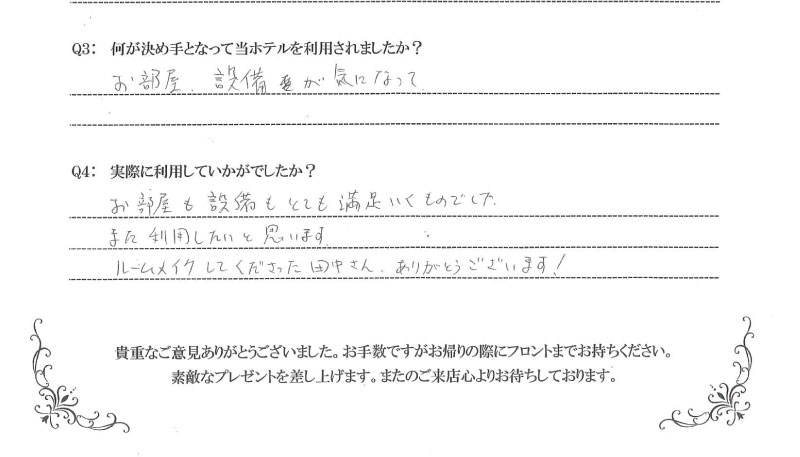 Q3: 何が決め手となって当ホテルを利用されましたか？
お部屋、設備が気になって
Q4: 実際に利用していかがでしたか？
お部屋も設備もとても満足いくものでした。
また利用したいと思います。
ルームメイクしてくださった田中さん、ありがとうございます！
貴重なご意見ありがとうございました。お手数ですがお帰りの際にフロントまでお持ちください。
素敵なプレゼントを差し上げます。またのご来店心よりお待ちしております。